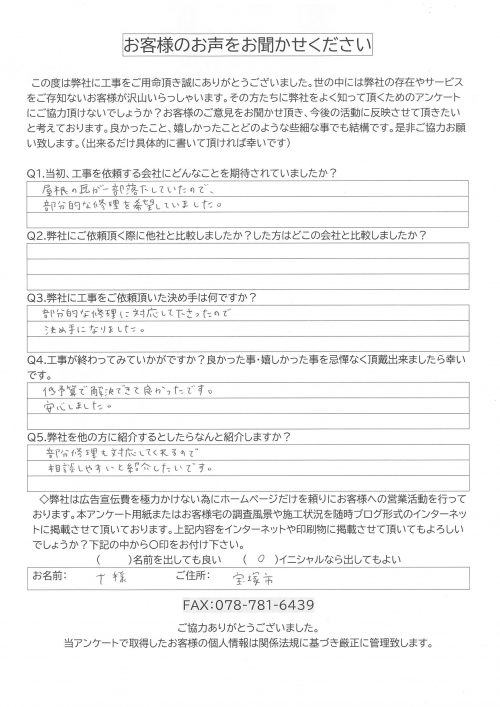 お客様のお声をお聞かせください
この度は弊社に工事をご用命頂き誠にありがとうございました。世の中には弊社の存在やサービス
をご存知ないお客様が沢山いらっしゃいます。その方たちに弊社をよく知って頂くためのアンケート
にご協力頂けないでしょうか？お客様のご意見をお聞かせ頂き、今後の活動に反映させて頂きたい
と考えております。良かったこと、嬉しかったことどのような些細な事でも結構です。是非ご協力お願
い致します。（出来るだけ具体的に書いて頂ければ幸いです）
Q1.当初、工事を依頼する会社にどんなことを期待されていましたか？
屋根の瓦が一部落下していたので、
部分的な修理を希望していました。
Q2.弊社にご依頼頂く際に他社と比較しましたか？した方はどこの会社と比較しましたか？
Q3.弊社に工事をご依頼頂いた決め手は何ですか？
部分的な修理に対応して下さったので
決め手になりました。
Q4.工事が終わってみていかがですか？良かった事・嬉しかった事を忌憚なく頂戴出来ましたら幸い
です。
低予算で解決できて良かったです。
安心しました。
Q5.弊社を他の方に紹介するとしたらなんと紹介しますか？
部分修理も対応してくれるので
相談しやすいと紹介したいです。
◇弊社は広告宣伝費を極力かけない為にホームページだけを頼りにお客様への営業活動を行って
おります。本アンケート用紙またはお客様宅の調査風景や施工状況を随時ブログ形式のインターネッ
トに掲載させて頂いております。上記内容をインターネットや印刷物に掲載させて頂いてもよろしい
でしょうか？下記の中から〇印をお付け下さい。
（　　）名前を出しても良い　（ ○ ）イニシャルなら出してもよい
お名前：　　様　　ご住所：　宝塚市
FAX:078-781-6439
ご協力ありがとうございました。
当アンケートで取得したお客様の個人情報は関係法規に基づき厳正に管理致します。